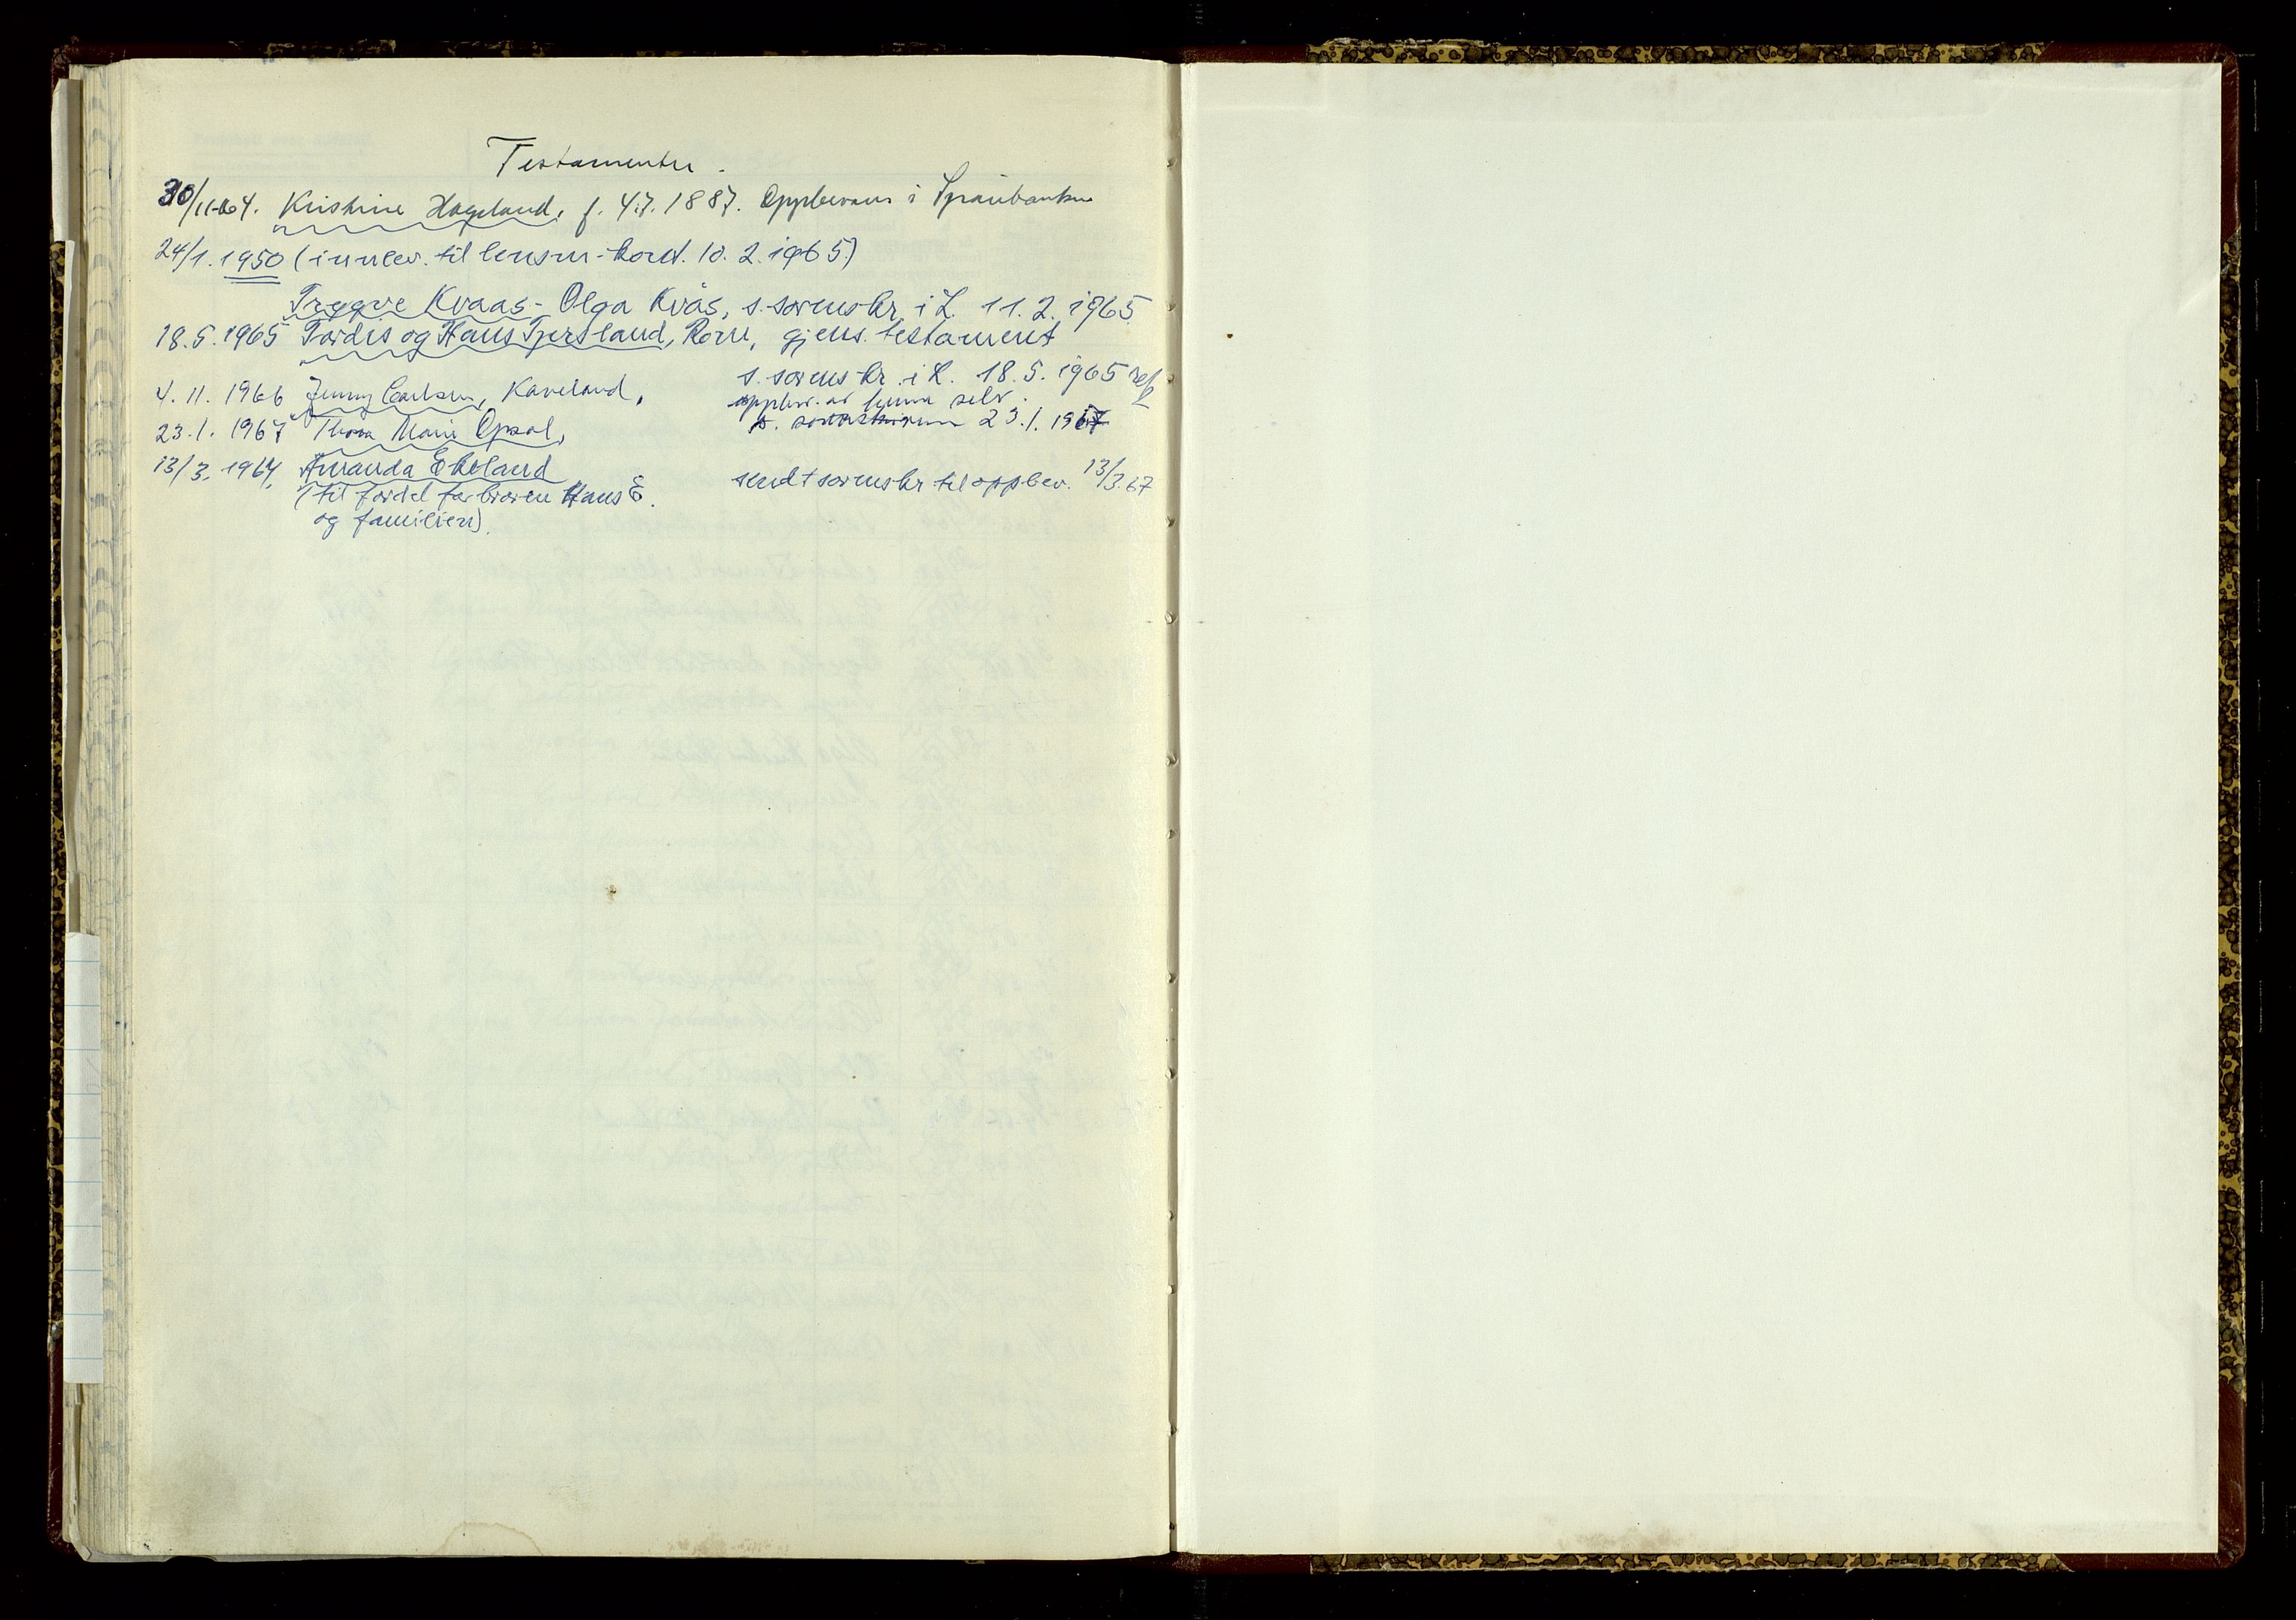 Testamenter.
30/11-64. Kristine Hageland, f. 4.7.1887. Oppbevares i Sparebanken
24/1.1950 (innlev. til lensm-kont. 10.2.1965)
Trygve Kvaas - Olga Kvås, s. sorenskr. i L. 11.2.1965
18.5.1965 Tordis og Hans Tjersland, Rom, gjens. testament
s. sorenskr. i L. 18.5.1965
4.11.1966 Jenny Carlsen, Kaveland, oppbev. av henne selv.
23.1.1967 Thora Marie Opsal, 23.1.1967
13/3.1967. Amanda Ekeland sendt sorenskr. til oppbev. 13/3.67
(til fordel for broren Hans E.
og familien).